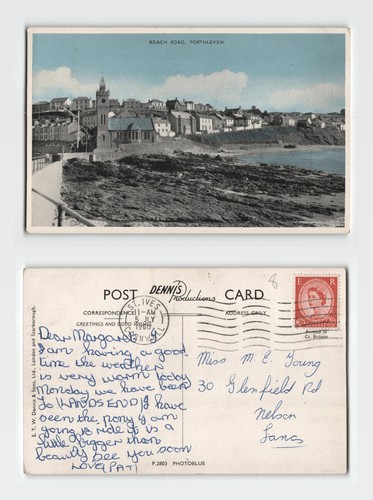 BEACH ROAD, PORTHLEVEN.
POST DENNIS Productions CARD
CORRESPONDENCE
ADDRESS ONLY
GREETINGS AND GOOD WISHES
ST. IVES
11-AM
5 JLY
1960
CORNWALL
E R
Printed in
Gt. Britain
Dear Margaret
I am having a good
time the weather
is very warm today
Monday we have been
to LANDS END I have
seen the pony I am
going to ride it is a
little bigger than
beauty See you soon
LOVE PAT
Miss M. E. Young
30 Glenfield Rd
Nelson
Lancs
8
E. T. W. Dennis & Sons, Ltd., London and Scarborough.
P.2803 PHOTOBLUE